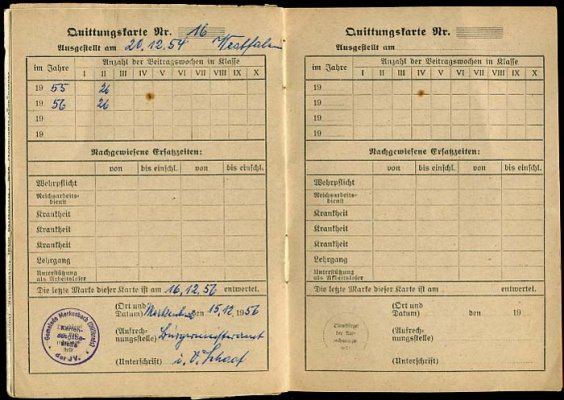 Quittungskarte Nr. 16
Ausgestellt am 20.12.54 Westfalen
im Jahre
Anzahl der Beitragswochen in Klasse
I II III IV V VI VII VIII IX X
19 55 26
19 56 26
19
19
Nachgewiesene Ersatzzeiten:
von bis einschl. von bis einschl.
Wehrpflicht
Reichsarbeits-
dienst
Krankheit
Krankheit
Krankheit
Lehrgang
Unterstützung
als Arbeitsloser
Die letzte Marke dieser Karte ist am 16.12.56 entwertet.
(Ort und
Datum) den 15.12.1956
(Aufrech-
nungsstelle) Bürgermeisteramt
(Unterschrift) i. V. Schaaf
Gemeinde Merkenbach (Dillkreis)
der J.V.
Quittungskarte Nr.
Ausgestellt am
im Jahre
Anzahl der Beitragswochen in Klasse
I II III IV V VI VII VIII IX X
19
19
19
19
Nachgewiesene Ersatzzeiten:
von bis einschl. von bis einschl.
Wehrpflicht
Reichsarbeits-
dienst
Krankheit
Krankheit
Krankheit
Lehrgang
Unterstützung
als Arbeitsloser
Die letzte Marke dieser Karte ist am entwertet.
(Ort und
Datum) den 19
(Aufrech-
nungsstelle)
(Unterschrift)